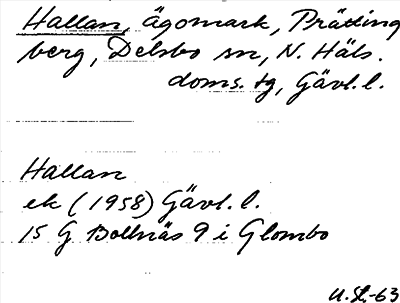 Hallan, ägomark, Prätting
berg, Delsbo sn, N. Häls.
doms. tg, Gävl. l.
Hallan
ek (1958) Gävl. l.
15 G Bollnäs 9 i Glombo
U. SL.-63